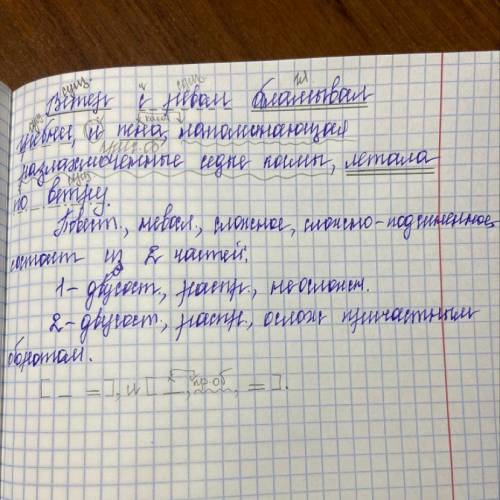 сущ. п сущ. гл
Ветер с ревом вламывал
щебнег, и пена, напоминающая
разлохмаченные седые космы, летала
по ветру.
Повест., невоскл., сложное, сложно-подчиненное,
состоит из 2 частей.
1 - двусост, распр, неослож.
2 - двусост, распр, ослож причастным
оборотом.
[ _ = ], и [ _, пр.об, = ].